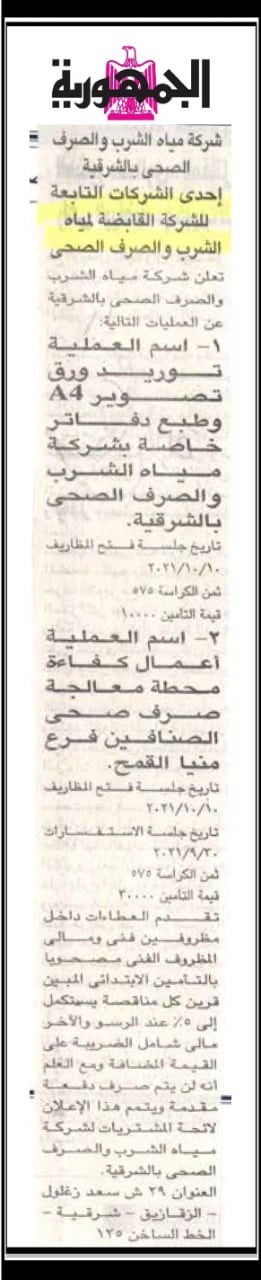 الجمهورية
شركة مياه الشرب والصرف
الصحى بالشرقية
إحدى الشركات التابعة
للشركة القابضة لمياه
الشرب والصرف الصحى
تعلن شركة مياه الشرب
والصرف الصحى بالشرقية
عن العمليات التالية:
١- اسم العملية
توريد ورق
تصوير A4
وطبع دفاتر
خاصة بشركة
مياه الشرب
والصرف الصحى
بالشرقية.
تاريخ جلسة فتح المظاريف
٢٠٢١/١٠/١٠
ثمن الكراسة ٥٧٥
قيمة التأمين ١٠٠٠٠
٢- اسم العملية
أعمال كفاءة
محطة معالجة
صرف صحى
الصنافين فرع
منيا القمح.
تاريخ جلسة فتح المظاريف
٢٠٢١/١٠/١٠
تاريخ جلسة الاستفسارات
٢٠٢١/٩/٣٠
ثمن الكراسة ٥٧٥
قيمة التأمين ٣٠٠٠٠
تقدم العطاءات داخل
مظروفين فنى ومالى
المظروف الفنى مصحوبا
بالتأمين الابتدائى المبين
قرين كل مناقصة يستكمل
إلى ٥٪ عند الرسو والآخر
مالى شامل الضريبة على
القيمة المضافة ومع العلم
أنه لن يتم صرف دفعة
مقدمة ويتمم هذا الإعلان
لائحة المشتريات لشركة
مياه الشرب والصرف
الصحى بالشرقية.
العنوان ٢٩ ش سعد زغلول
- الزقازيق - شرقية -
الخط الساخن ١٢٥